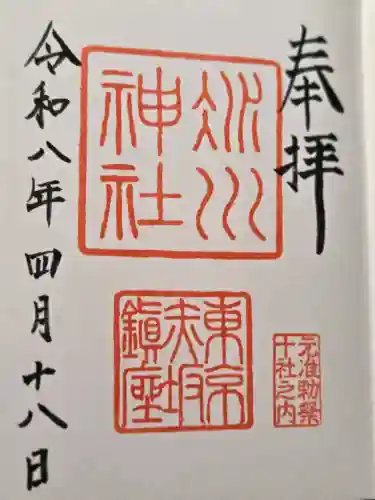 奉拝
氷川
神社
東京
赤坂
鎮座
元准勅祭
十社之内
令和八年四月十八日